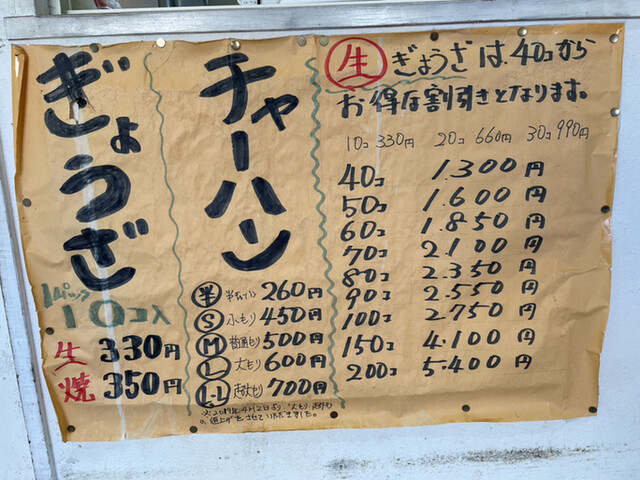 ぎょうざ
1パック
10コ入
生 330円
焼 350円
チャーハン
半 半チャーハン 260円
S 小もり 450円
M 普通もり 500円
L 大もり 600円
L.L 超大もり 700円
の値上げをさせていただきました。
生 ぎょうざは、40コから
お得な割引きとなります。
10コ 330円 20コ 660円 30コ 990円
40コ 1.300円
50コ 1.600円
60コ 1.850円
70コ 2.100円
80コ 2.350円
90コ 2.550円
100コ 2.750円
150コ 4.100円
200コ 5.400円